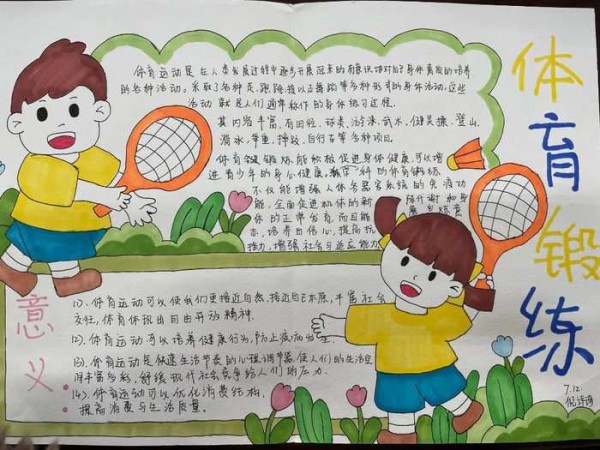 体育锻练
体育运动是在人类发展过程中逐步开展起来的有意识地对自己身体素质的培养
的各种活动。采取了各种走、跑、跳、投以及舞蹈等多种形式的身体活动,这些
活动就是人们通常称作的身体练习过程。
其内容丰富,有田径、球类、游泳、武术、健美操、登山、
滑冰、举重、摔跤、自行车等各种项目。
体育锻炼能积极促进身体健康,可以增
进青少年的身心健康,科的体育锻炼,
不仅能增强人体各器官系统的灵活功
能,全面促进机体的新陈代谢和身
体的正常发育,而且能
培养自信心,提高抗
力,增强社会与适应能力
意义
(1)、体育运动可以使我们更接近自然,接近自己本原,丰富社会
交往,体育体现出自由开放精神。
(2)、体育运动可以培养健康行为,防止疾病的生。
(3)、体育运动是快速生活节奏的心理调节器,使人们的生活变
得丰富多彩,舒缓现代社会竞争给人们的压力。
(4)、体育运动可以优化消费结构,
提高消费与生活质量。
7.12.